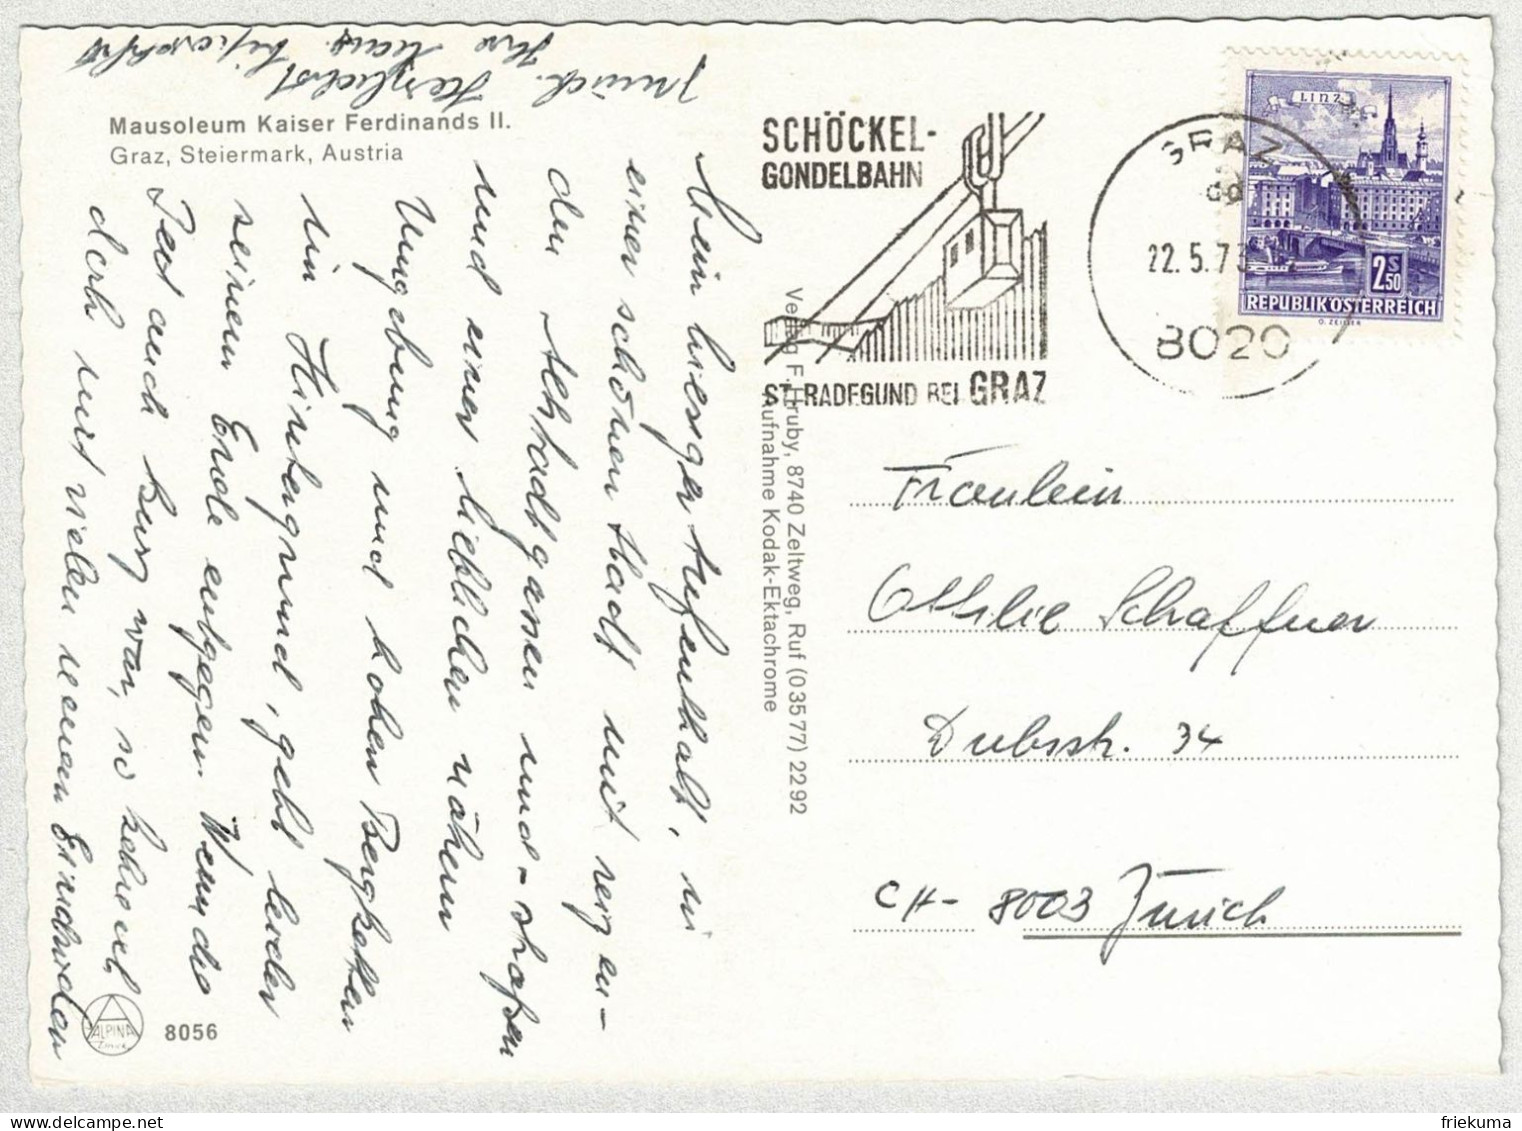 Mausoleum Kaiser Ferdinands II.
Graz, Steiermark, Austria
Mein hiesiger Aufenthalt, in
einer schönen Stadt mit reizen-
den Altstadtgassen und -strassen
und einer lieblichen nähern
Umgebung und hohen Bergketten
im Hintergrund, geht leider
seinem Ende entgegen. Wenn die
Zeit auch kurz war, so kehre ich
doch mit vielen neuen Eindrücken
zurück. Herzlichst
Ihr Hans
ALPINA
8056
Verlag F. Hruby, 8740 Zeltweg, Ruf (03577) 2292
Aufnahme Kodak-Ektachrome
SCHÖCKEL-
GONDELBAHN
ST. RADEGUND BEI GRAZ
GRAZ
22.5.73
8020
LINZ
2 S 50
REPUBLIK ÖSTERREICH
O. ZEILLER
Fräulein
Ottilie Schaffner
Dubsstr. 34
CH- 8003 Zürich
friekuma